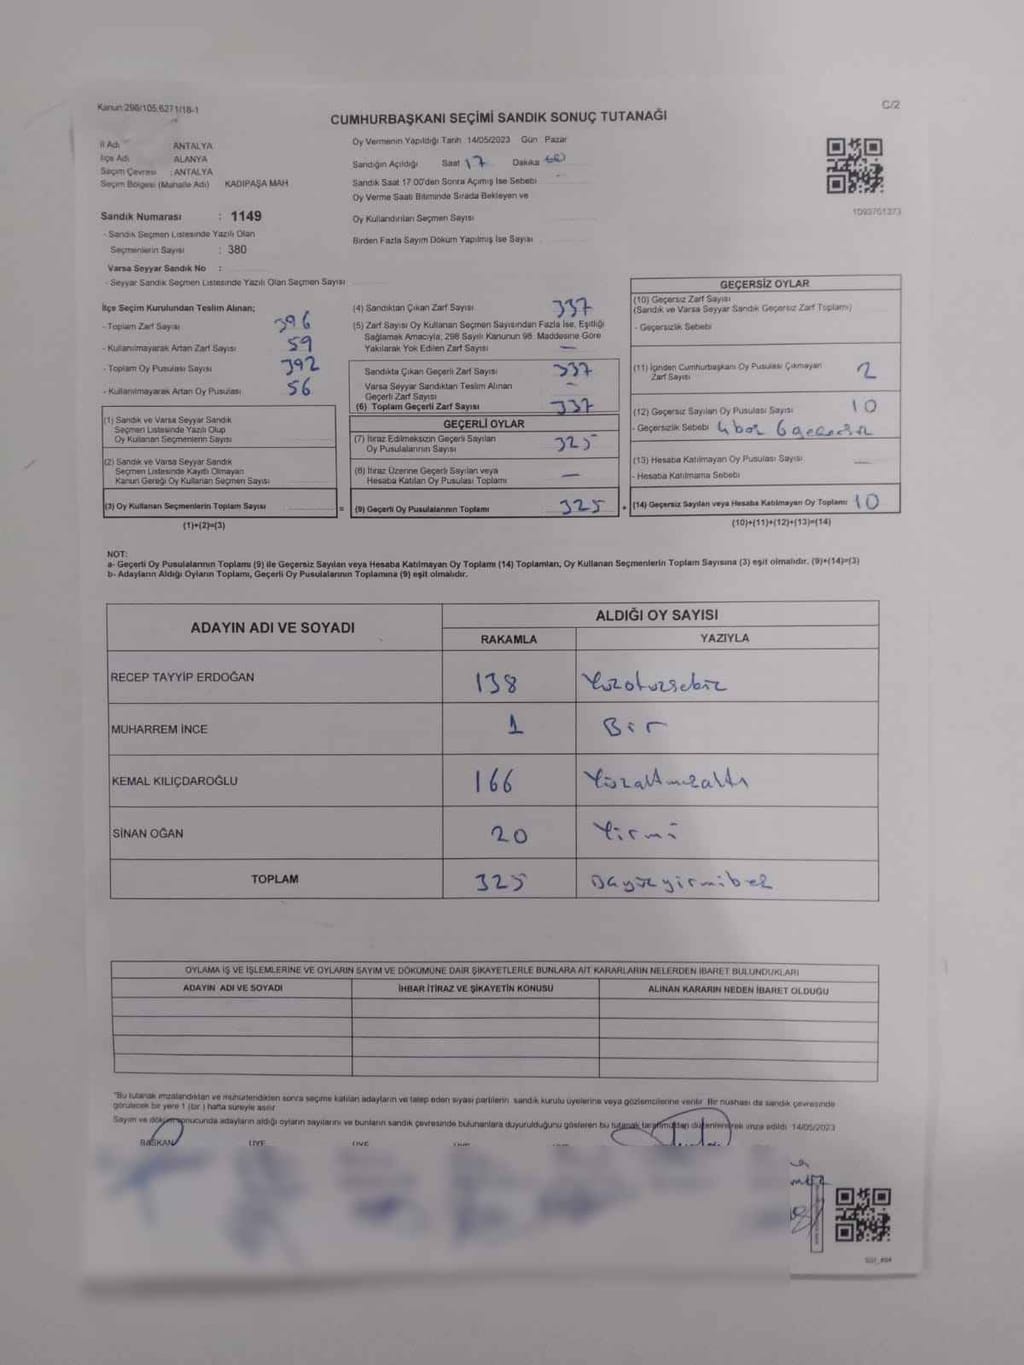 Kanun:298/105,6271/18-1
C/2
CUMHURBAŞKANI SEÇİMİ SANDIK SONUÇ TUTANAĞI
İl Adı ANTALYA
İlçe Adı ALANYA
Seçim Çevresi : ANTALYA
Seçim Bölgesi (Mahalle Adı) KADIPAŞA MAH
Oy Vermenin Yapıldığı Tarih 14/05/2023 Gün Pazar
Sandığın Açıldığı Saat 17 Dakika
Sandık Saat 17:00'den Sonra Açımış İse Sebebi
Oy Verme Saati Bitiminde Sırada Bekleyen ve
Oy Kullandırılan Seçmen Sayısı
Birden Fazla Sayım Döküm Yapılmış İse Sayısı
Sandık Numarası : 1149
- Sandık Seçmen Listesinde Yazılı Olan
Seçmenlerin Sayısı : 380
Varsa Seyyar Sandık No :
- Seyyar Sandık Seçmen Listesinde Yazılı Olan Seçmen Sayısı
İlçe Seçim Kurulundan Teslim Alınan;
- Toplam Zarf Sayısı 396
- Kullanılmayarak Artan Zarf Sayısı 59
- Toplam Oy Pusulası Sayısı 392
- Kullanılmayarak Artan Oy Pusulası 56
(1) Sandık ve Varsa Seyyar Sandık
Seçmen Listesinde Yazılı Olup
Oy Kullanan Seçmenlerin Sayısı
(2) Sandık ve Varsa Seyyar Sandık
Seçmen Listesinde Kayıtlı Olmayan
Kanun Gereği Oy Kullanan Seçmen Sayısı
(3) Oy Kullanan Seçmenlerin Toplam Sayısı
(1)+(2)=(3)
(4) Sandıktan Çıkan Zarf Sayısı 337
(5) Zarf Sayısı Oy Kullanan Seçmen Sayısından Fazla İse, Eşitliği
Sağlamak Amacıyla, 298 Sayılı Kanunun 98. Maddesine Göre
Yakılarak Yok Edilen Zarf Sayısı —
Sandıkta Çıkan Geçerli Zarf Sayısı 337
Varsa Seyyar Sandıktan Teslim Alınan
Geçerli Zarf Sayısı —
(6) Toplam Geçerli Zarf Sayısı 337
GEÇERLİ OYLAR
(7) İtiraz Edilmeksizin Geçerli Sayılan
Oy Pusulalarının Sayısı 325
(8) İtiraz Üzerine Geçerli Sayılan veya
Hesaba Katılan Oy Pusulası Toplamı —
= (9) Geçerli Oy Pusulalarının Toplamı 325
GEÇERSİZ OYLAR
(10) Geçersiz Zarf Sayısı
(Sandık ve Varsa Seyyar Sandık Geçersiz Zarf Toplamı)
- Geçersizlik Sebebi
(11) İçinden Cumhurbaşkanı Oy Pusulası Çıkmayan
Zarf Sayısı 2
(12) Geçersiz Sayılan Oy Pusulası Sayısı 10
- Geçersizlik Sebebi 4 boş 6 geçersiz
(13) Hesaba Katılmayan Oy Pusulası Sayısı —
- Hesaba Katılmama Sebebi
+ (14) Geçersiz Sayılan veya Hesaba Katılmayan Oy Toplamı 10
(10)+(11)+(12)+(13)=(14)
NOT:
a- Geçerli Oy Pusulalarının Toplamı (9) ile Geçersiz Sayılan veya Hesaba Katılmayan Oy Toplamı (14) Toplamları, Oy Kullanan Seçmenlerin Toplam Sayısına (3) eşit olmalıdır. (9)+(14)=(3)
b- Adayların Aldığı Oyların Toplamı, Geçerli Oy Pusulalarının Toplamına (9) eşit olmalıdır.
ADAYIN ADI VE SOYADI
ALDIĞI OY SAYISI
RAKAMLA YAZIYLA
RECEP TAYYİP ERDOĞAN 138 Yüzotuzsekiz
MUHARREM İNCE 1 Bir
KEMAL KILIÇDAROĞLU 166 Yüzaltmışaltı
SİNAN OĞAN 20 Yirmi
TOPLAM 325 Üçyüzyirmibeş
OYLAMA İŞ VE İŞLEMLERİNE VE OYLARIN SAYIM VE DÖKÜMÜNE DAİR ŞİKAYETLERLE BUNLARA AİT KARARLARIN NELERDEN İBARET BULUNDUKLARI
ADAYIN ADI VE SOYADI İHBAR İTİRAZ VE ŞİKAYETİN KONUSU ALINAN KARARIN NEDEN İBARET OLDUĞU
"Bu tutanak imzalandıktan ve mühürlendikten sonra seçime katılan adayların ve talep eden siyasi partilerin sandık kurulu üyelerine veya gözlemcilerine verilir. Bir nüshası da sandık çevresinde
görülecek bir yere 1 (bir ) hafta süreyle asılır
Sayım ve döküm sonucunda adayların aldığı oyların sayılarını ve bunların sandık çevresinde bulunanlara duyurulduğunu gösteren bu tutanak tarafımızdan düzenlenerek imza edildi. 14/05/2023
BAŞKAN ÜYE ÜYE